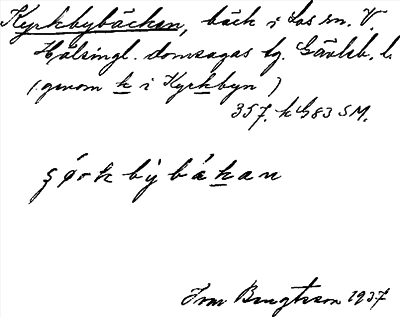 Kyrkbybäcken, bäck i Los sn. V.
Hälsingl. domsagas tg. Gävleb. l.
(genom k i Kyrkbyn)
357. k G83 SM.
bàkan
Ivar Bengtsson 1937